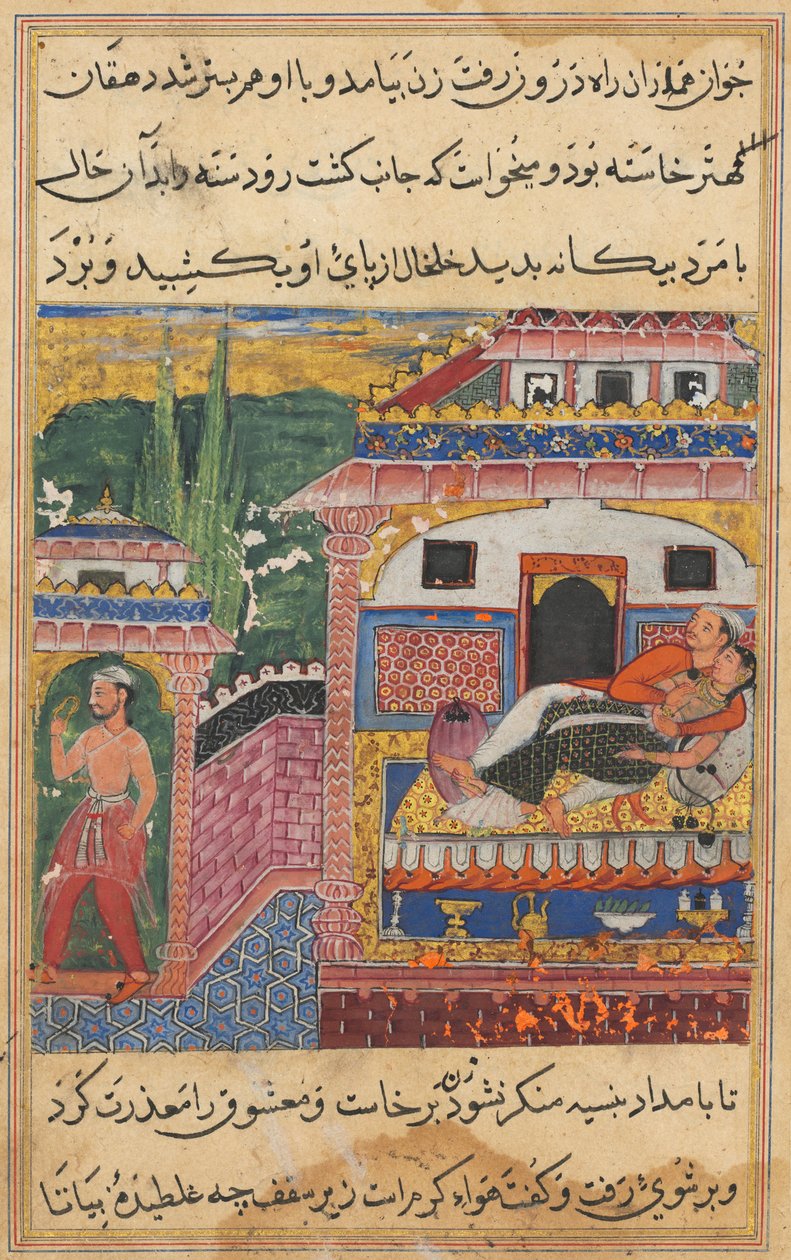 جوان هم‌دران راه درون رفت زن بیامد و با او هم بستر شد دهقان
مهتر خاسته بود و میخواست که جانب کشت رود سنه را بدان حال
با مرد بیکانه بدید خلخال از پائ او بکشید و برد
تا بامداد بنسیه منکر نشود زن برخاست و معشوق را معذرت کرد
و بر شوئ رفت و کفت هواء کرم است زیر سقف چه غلطیدهٔ بیا تا